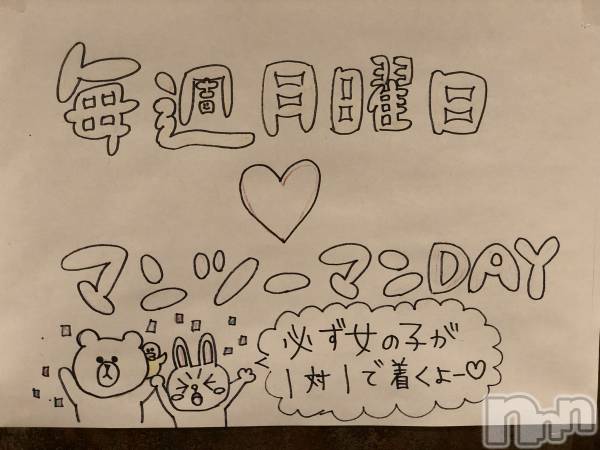 毎週月曜日
♡
マンツーマンDAY
必ず女の子が
1対1で着くよー♡
nnn